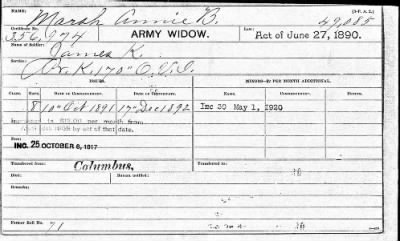 NAME:
Marsh Annie B. 49,085
Certificate No.
356,974 ARMY WIDOW. Act of June 27, 1890.
Name of Soldier:
James K.
Service:
Co. K. 170" O.V.I.
ISSUES. MINORS—$2 PER MONTH ADDITIONAL.
CLASS. RATE. DATE OF COMMENCEMENT. DATE OF CERTIFICATE. NAMES. DATE OF COMMENCEMENT.
8 10" Oct 1891 17" Dec 1892 Inc 30 May 1, 1920
Increased to $12.00 per month from
by act of that date.
INC. 25 OCTOBER 6, 1917
Transferred from: Columbus, Transferred to:
Died: Bureau notified:
Remarks:
Former Roll No. 71